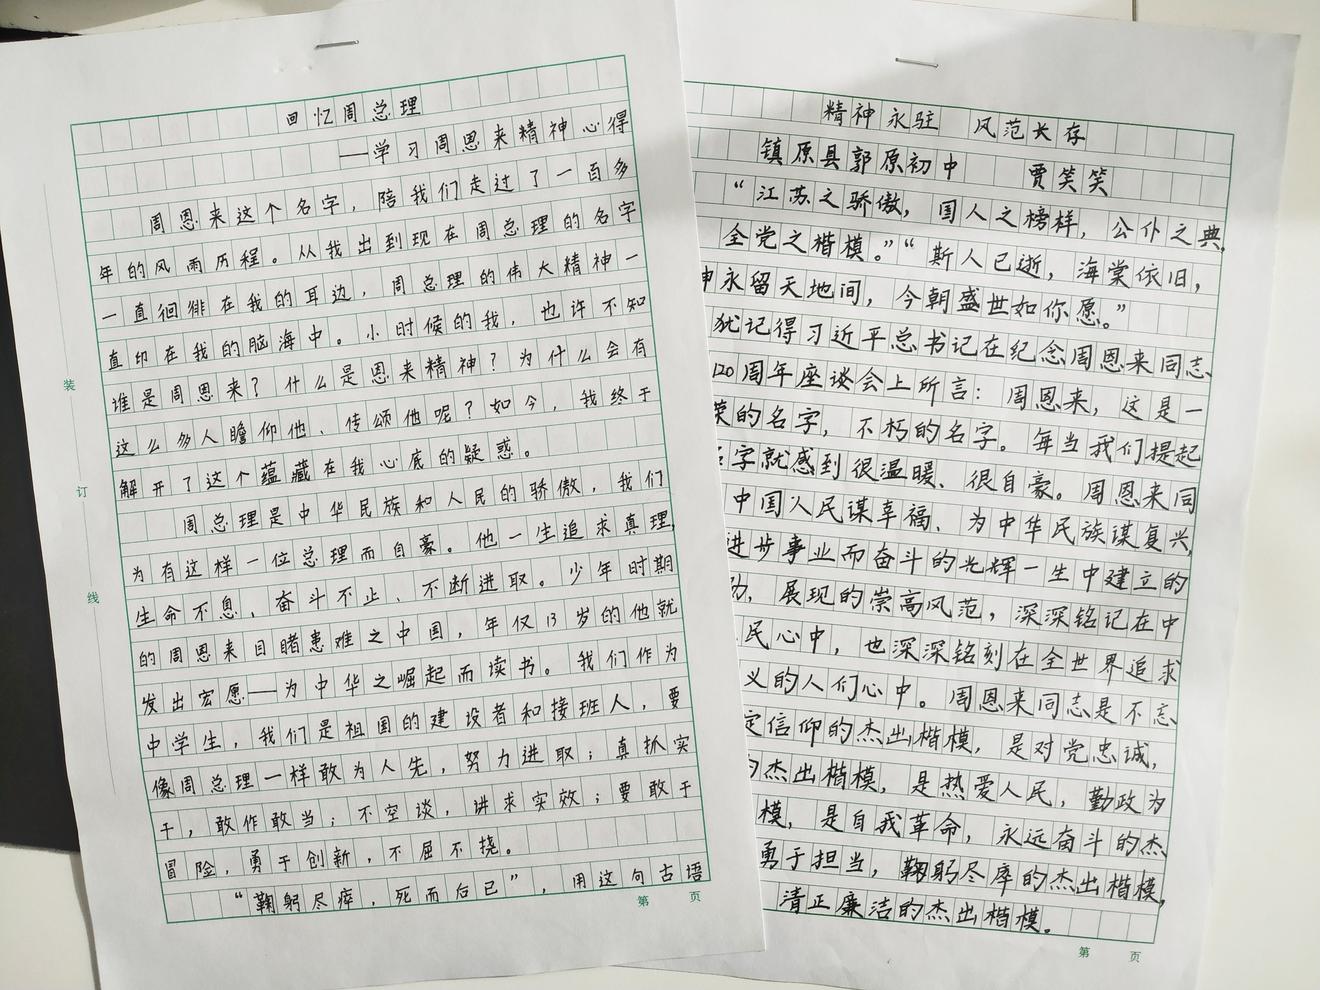 回忆周总理
——学习周恩来精神心得
周恩来这个名字，陪我们走过了一百多
年的风雨历程。从我出到现在周总理的名字
一直徊徘在我的耳边，周总理的伟大精神一
直印在我的脑海中。小时候的我，也许不知
谁是周恩来？什么是恩来精神？为什么会有
这么多人瞻仰他、传颂他呢？如今，我终于
解开了这个蕴藏在我心底的疑惑。
周总理是中华民族和人民的骄傲，我们
为有这样一位总理而自豪。他一生追求真理，
生命不息，奋斗不止、不断进取。少年时期
的周恩来目睹患难之中国，年仅13岁的他就
发出宏愿——为中华之崛起而读书。我们作为
中学生，我们是祖国的建设者和接班人，要
像周总理一样敢为人先，努力进取；真抓实
干，敢作敢当；不空谈，讲求实效；要敢于
冒险，勇于创新，不屈不挠。
“鞠躬尽瘁，死而后已”，用这句古语
第 页
装
订
线
精神永驻 风范长存
镇原县郭原初中 贾笑笑
“江苏之骄傲，国人之榜样，公仆之典，
全党之楷模。”“斯人已逝，海棠依旧，
永留天地间，今朝盛世如你愿。”
犹记得习近平总书记在纪念周恩来同志
120周年座谈会上所言：周恩来，这是一
的名字，不朽的名字。每当我们提起
字就感到很温暖、很自豪。周恩来同
中国人民谋幸福、为中华民族谋复兴，
进步事业而奋斗的光辉一生中建立的
展现的崇高风范，深深铭记在中
民心中，也深深铭刻在全世界追求
义的人们心中。周恩来同志是不忘
信仰的杰出楷模，是对党忠诚，
杰出楷模，是热爱人民，勤政为
模，是自我革命，永远奋斗的杰
勇于担当，鞠躬尽瘁的杰出楷模，
清正廉洁的杰出楷模。
第 页